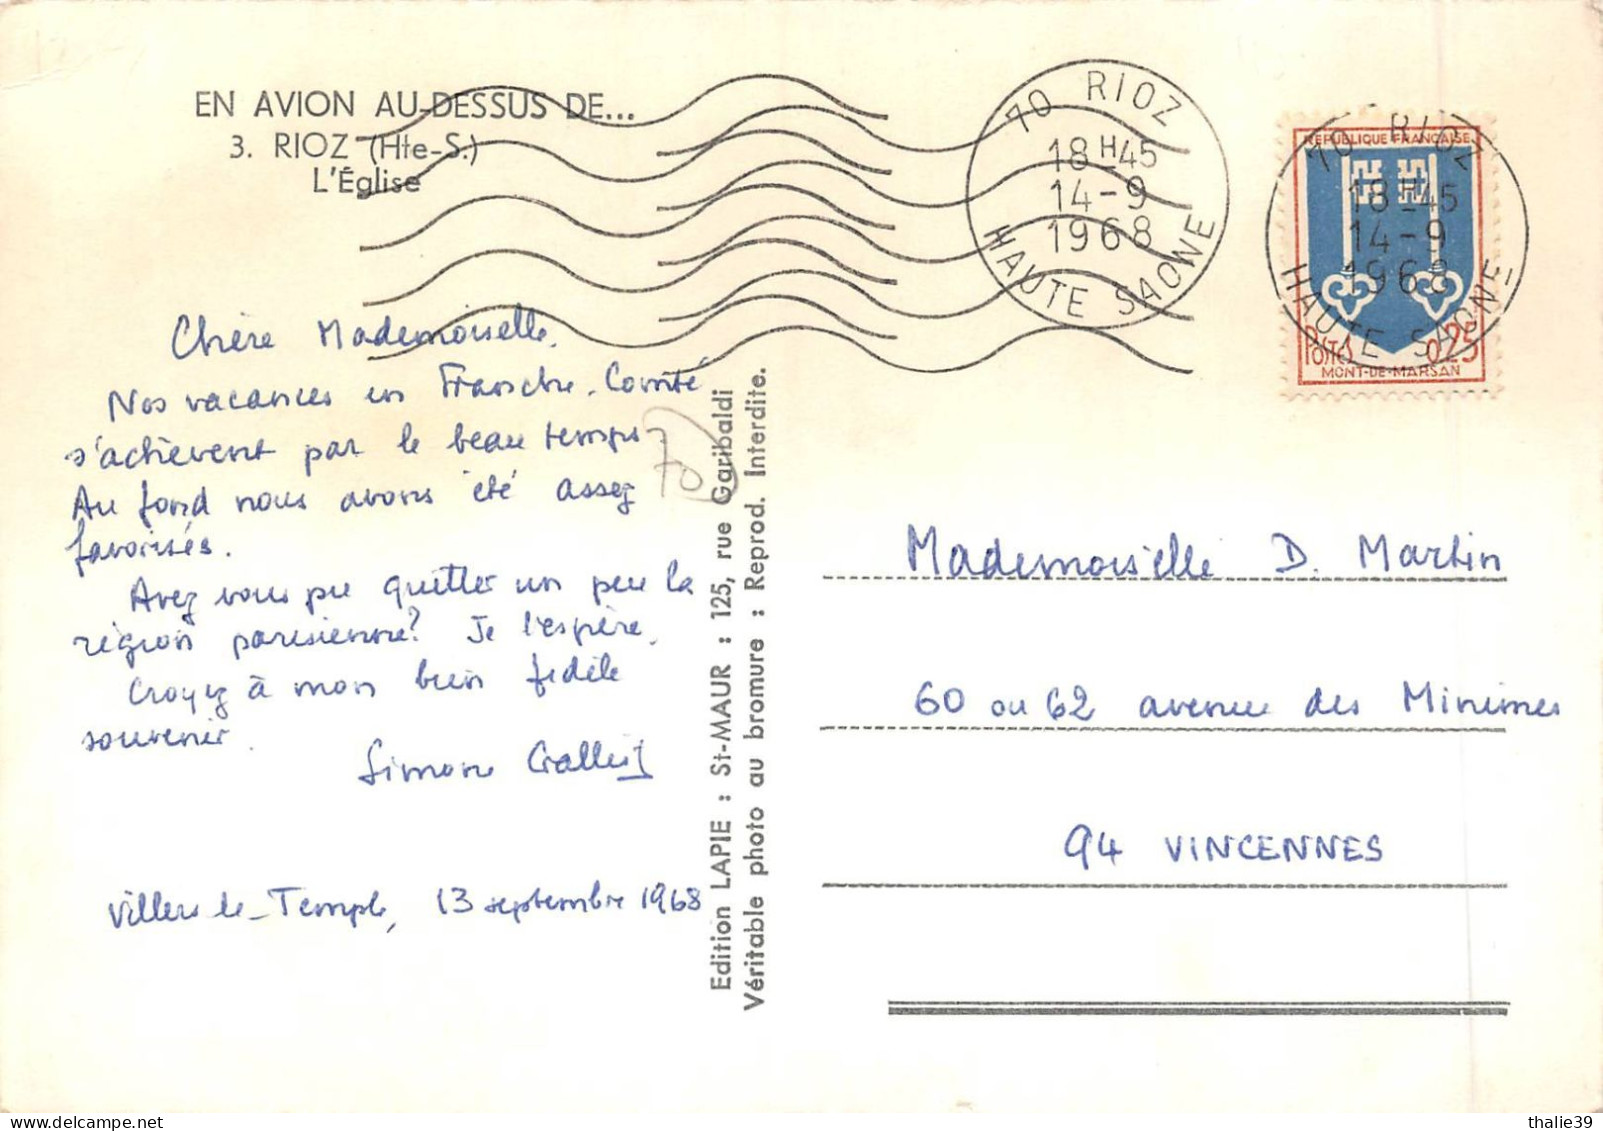 EN AVION AU-DESSUS DE...
3. RIOZ (Hte-S.)
L'Église
70 RIOZ
18 H 45
14-9
1968
HAUTE SAONE
REPUBLIQUE FRANÇAISE
70 RIOZ
18 H 45
14-9
1968
HAUTE SAONE
POSTES 0,25
MONT-DE-MARSAN
Chère Mademoiselle,
Nos vacances en Franche-Comté
s'achèvent par le beau temps.
Au fond nous avons été assez
favorisés.
Avez vous pu quitter un peu la
région parisienne? Je l'espère.
Croyez à mon bien fidèle
souvenir.
Simone
Villers le-Temple, 13 septembre 1968
70
Edition LAPIE : St-MAUR : 125, rue Garibaldi
Véritable photo au bromure : Reprod. Interdite.
Mademoiselle D. Martin
60 ou 62 avenue des Minimes
94 VINCENNES
thalie39